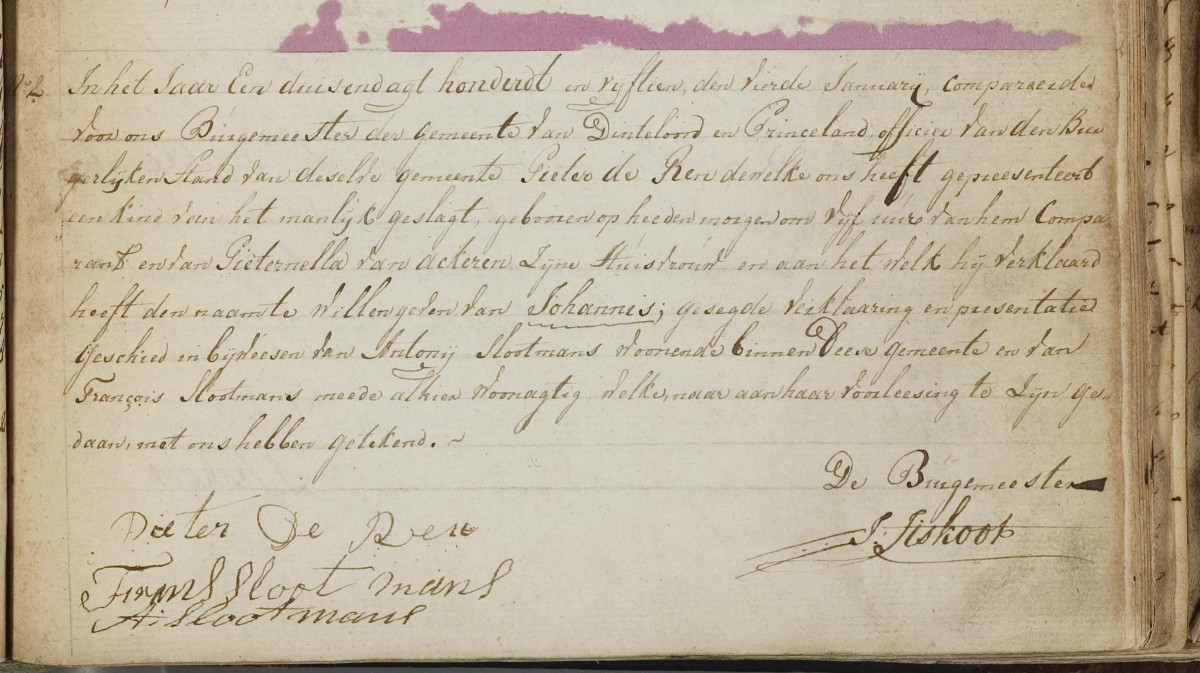 No 2 In het Jaar Een duisend agt honderdt en vyftien, den vierde January, compareerde
voor ons Burgemeester der gemeente van Dinteloord en Princeland, officier van den Bur
gerlyken Stand van deselve gemeente Pieter de Ren dewelke ons heeft gepresenteert
een kind van het manlyk geslagt, gebooren op heeden morgen om vyf uure van hem Compa
rant en van Pieternella van Ackeren Zyne Huisvrouw en aan het welk hy verklaard
heeft den naam te willen geven van Johannis; gesegde verklaaring en presentatie
Geschied in byweesen van Antony Slootmans woonende binnen Deese gemeente en van
François Slootmans meede alhier woonagtig welke, naar aan haar voorleesing te Zyn ge=
daan, met ons hebben getekend. ~
De Burgemeester
Pieter De Ren
Frans Slootmans
A: Slootmans